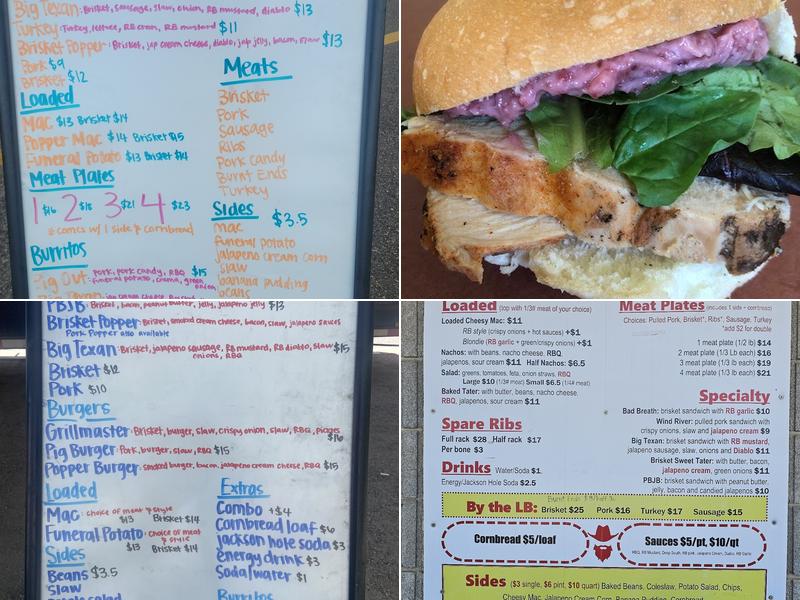 Big Texan: Brisket, sausage, slaw, onion, RB mustard, diablo $13
Turkey: Turkey, lettuce, RB cran, RB mustard $11
Brisket Popper: Brisket, jap cream cheese, diablo, jap jelly, bacon, slaw $13
Pork $9
Brisket $12
Loaded
Mac $13 Brisket $14
Popper Mac $14 Brisket $15
Funeral Potato $13 Brisket $14
Meat Plates
1 $16 2 $18 3 $21 4 $23
* comes w/ 1 side & cornbread
Burritos
Pig Out: pork, pork candy, RBQ $15
funeral potato, crema, green onion
Meats
Brisket
Pork
Sausage
Ribs
Pork candy
Burnt Ends
Turkey
Sides $3.5
mac
funeral potato
jalapeno cream corn
slaw
banana pudding
beans
PBJB: Brisket, bacon, peanut butter, jelly, jalapeno jelly $13
Brisket Popper: Brisket, smoked cream cheese, bacon, slaw, jalapeno sauces
Pork Popper also available
Big Texan: Brisket, jalapeno sausage, RB mustard, RB diablo, slaw $15
onions, RBQ
Brisket $12
Pork $10
Burgers
Grillmaster: Brisket, burger, slaw, crispy onion, slaw, RBQ, pickles $16
Pig Burger: Pork, burger, slaw, RBQ $15
Popper Burger: smoked burger, bacon, jalapeno cream cheese, RBQ $15
Loaded
Mac: choice of meat & style
$13 Brisket $14
Funeral Potato: choice of meat & style
$13 Brisket $14
Sides
Beans $3.5
slaw
Extras
Combo +$4
Cornbread loaf $6
jackson hole soda $3
energy drink $3
Soda/water $1
Burritos
Loaded (top with 1/3# meat of your choice)
Loaded Cheesy Mac: $11
RB style (crispy onions + hot sauces) +$1
Blondie (RB garlic + green/crispy onions) +$1
Nachos: with beans, nacho cheese, RBQ,
jalapenos, sour cream $11 Half Nachos: $6.5
Salad: greens, tomatoes, feta, onion straws, RBQ
Large $10 (1/3# meat) Small $6.5 (1/4# meat)
Baked Tater: with butter, beans, nacho cheese,
RBQ, jalapenos, sour cream $11
Spare Ribs
Full rack $28 Half rack $17
Per bone $3
Drinks Water/Soda $1
Energy/Jackson Hole Soda $2.5
Meat Plates (includes 1 side + cornbread)
Choices: Pulled Pork, Brisket*, Ribs*, Sausage, Turkey
*add $2 for double
1 meat plate (1/2 lb) $14
2 meat plate (1/3 Lb each) $16
3 meat plate (1/3 lb each) $19
4 meat plate (1/3 lb each) $21
Specialty
Bad Breath: brisket sandwich with RB garlic $10
Wind River: pulled pork sandwich with
crispy onions, slaw and jalapeno cream $9
Big Texan: brisket sandwich with RB mustard,
jalapeno sausage, slaw, onions and Diablo $11
Brisket Sweet Tater: with butter, bacon,
jalapeno cream, green onions $11
PBJB: brisket sandwich with peanut butter,
jelly, bacon and candied jalapenos $10
By the LB: Brisket $25 Pork $16 Turkey $17 Sausage $15
Cornbread $5/loaf
Sauces $5/pt, $10/qt
RBQ, RB Mustard, Deep South, RB pink, Jalapeno Cream, Diablo, RB Garlic
Sides ($3 single, $6 pint, $10 quart) Baked Beans, Coleslaw, Potato Salad, Chips,
Cheesy Mac, Jalapeno Cream Corn, Banana Pudding, Cornbread